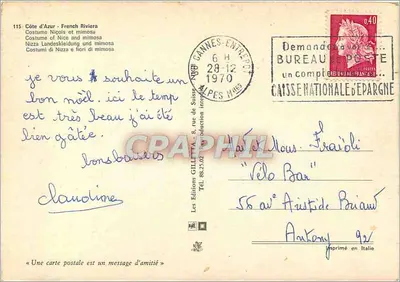 115 - Côte d'Azur - French Riviera
Costume Niçois et mimosa
Costume of Nice and mimosa
Nizza Landeskleidung und mimosa
Costumi di Nizza e fiori di mimosa
je vous souhaite un
bon noël. ici le temps
est très beau j'ai été
bien gâtée.
bons baisers
Claudine
« Une carte postale est un message d'amitié »
Les Editions GILLETTA, 8, rue de Suisse
Tél. 88.25.02
06 CANNES-ENTREPOT
6 H
28-12
1970
ALPES Mmes
0,40
Demandez
BUREAU de POSTE
un compte
CAISSE NATIONALE D'EPARGNE
CPRAPHIL
et Mons. Fraioli
"Vélo Bar"
56 av Aristide Briand
Antony 92
Imprimé en Italie